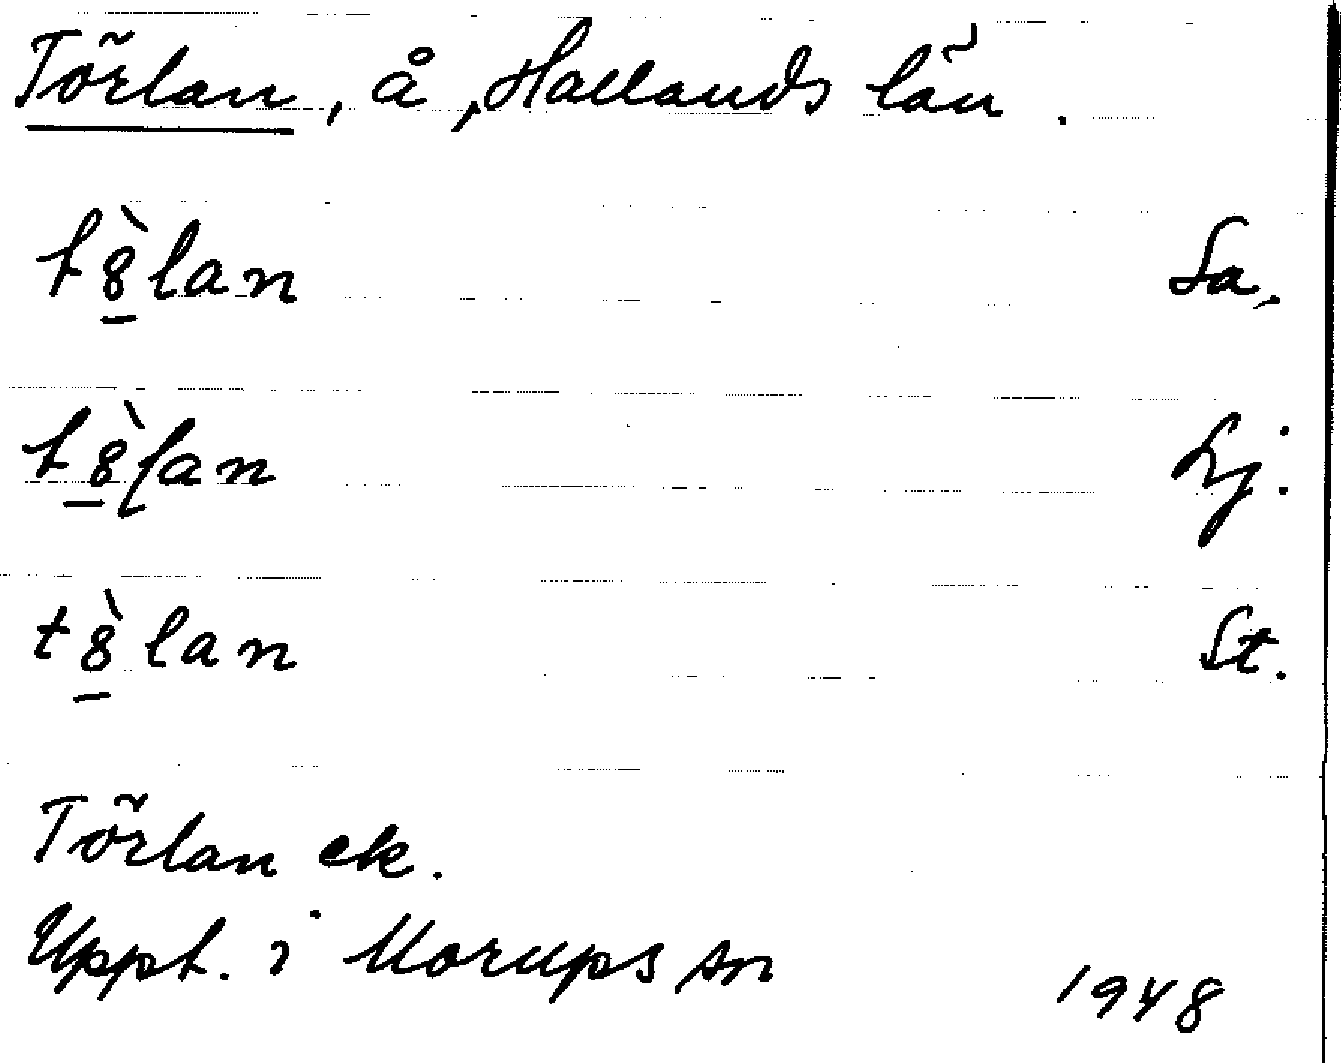 Törlan, å, Hallands län.
t8̱̀lan Sa.
t8̱̀lan Lj.
t8̱̀lan St.
Törlan ek.
Uppt. i Morups sn 1948